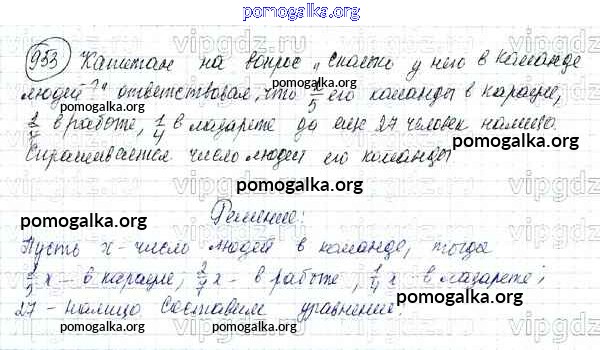 pomogalka.org
953 Капитан на вопрос „Сколько у него в команде
людей?" ответствовал, что 2/5 его команды в карауле,
2/7 в работе, 1/4 в лазарете да еще 27 человек налицо.
Спрашивается число людей его команды
pomogalka.org
pomogalka.org
pomogalka.org
Решение:
Пусть x - число людей в команде, тогда
x - в карауле, 2/7 x - в работе, 1/4 x - в лазарете;
27 - налицо. Составим уравнение:
pomogalka.org
pomogalka.org